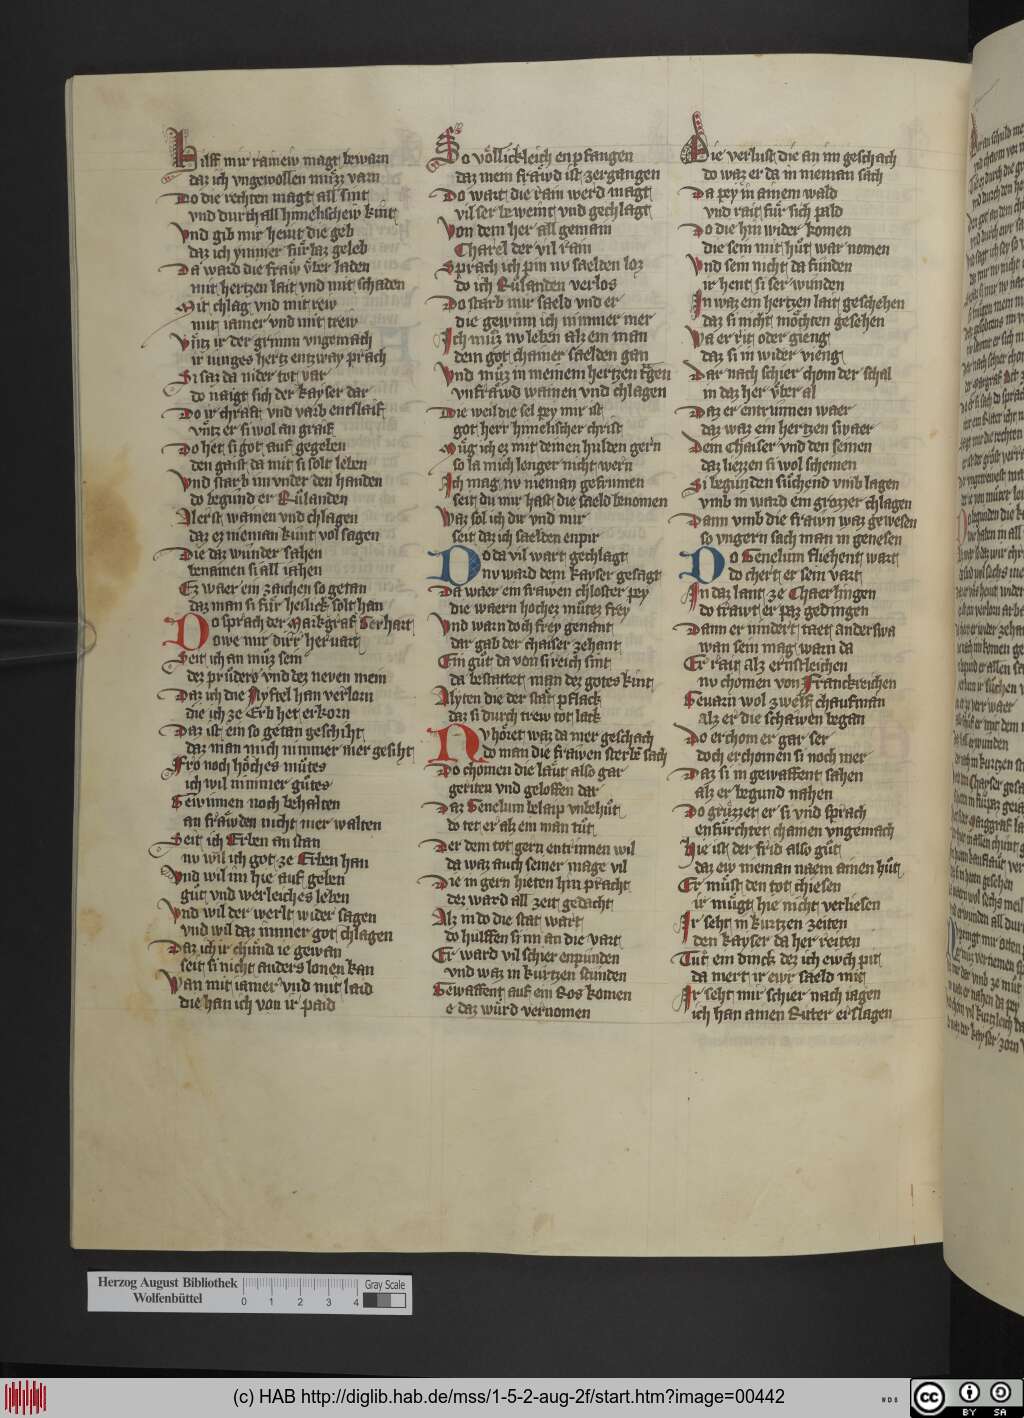 Hilff mir rainew magt bewarn
daz ich vngewollen muͤzz varn
Do die rechten magt all sint
vnd durch all himelischew kint
Vnd gib mir heint die geb
daz ich ymmer fuͤrbaz geleb
Da ward die fraw vͤber laden
mit hertzen lait vnd mit schaden
Mit chlag vnd mit rew
mit iamer vnd mit trew
Vntz ir der grimm vngemach
ir iunges hertz entzway prach
Si saz da nider tot var
do naigt sich der kayser dar
Do ir chraft vnd varb entslaif
vntz er si wol an graif
Do het si got auf gegeben
den gaist da mit si solt leben
Vnd starb im vnder den handen
do begund er Ruͤlanden
Alerst wainen vnd chlagen
daz ez nieman kunt vol sagen
Die daz wunder sahen
benamen si all iahen
Ez waer ein zaichen so getan
daz man si fuͤr heilick solt han
Do sprach der Markgraf Gerhart
owe mir dirr hervart
Seit ich an muͤz sein
dez pruͤders vnd dez neven mein
Daz ich die Nyftel han verlorn
die ich ze Erb het erkorn
Daz ist ein so getan geschiht
daz man mich nimmer mer gesiht
Fro noch hoͤches muͤtes
ich wil nimmer guͤtes
Gewinnen noch behalten
an fraͤwden nicht mer walten
Seit ich Erben an stan
nv wil ich got ze Erben han
Vnd wil im hie auf geben
guͤt vnd werleiches leben
Vnd wil der werlt wider sagen
vnd wil daz immer got chlagen
Daz ich ir chuͤnd ie gewan
seit si nicht anders lonen kan
Van mit iamer vnd mit laid
die han ich von ir paid
So voͤllickleich enpfangen
daz mein fraͤwd ist zergangen
Do wart die rain werd magt
vil ser beweint vnd gechlagt
Von dem her all gemain
Charel der vil rain
Sprach ich pin nv saelden loz
do ich Ruͤlanden verlos
Do starb mir saeld vnd er
die gewinn ich nimmer mer
Ich muͤz nv leben alz ein man
dem got chainer saelden gan
Vnd muͤz in meinem hertzen tragen
vnfraͤwd wainen vnd chlagen
Die weil die sel pey mir ist
got herr himelischer christ
Muͤg ich ez mit deinen hulden gern
so la mich lenger nicht wern
Ich mag nv nieman gefrumen
seit du mir hast die saeld benomen
Waz sol ich dir vnd mir
seit daz ich saelden enpir
Do da vil wart gechlagt
nv ward dem kayser gesagt
Da waer ein frawen chloster pey
die waern hochez muͤtez frey
Vnd warn doch frey genant
dar gab der chaiser zehant
Ein guͤt da von si reich sint
da bestattet man dez gotes kint
Alyten die der staͤt pflack
daz si durch trew tot lack
Nv hoͤret waz da mer geschach
do man die frawen sterben sach
Do chomen die laͤut also gar
geriten vnd geloffen dar
Daz Genelum belaip vnbehuͤt
do tet er alz ein man tuͤt
Der dem tot gern entrinnen wil
da waz auch seiner mage vil
Die in gern hieten hin pracht
dez ward all zeit gedacht
Alz in do die stat wart
do hulffen si im an die vart
Er ward vil schier enpunden
vnd waz in kurtzen stunden
Gewaffent auf ein Ros komen
e daz wuͤrd vernomen
Die verlust die an im geschach
do waz er da in nieman sach
Da pey in ainem wald
vnd rait fuͤr sich pald
Do die hin wider komen
die sein mit huͤt war nomen
Vnd sein nicht da funden
ir hent si ser wunden
In waz ein hertzen lait geschehen
daz si nicht moͤchten gesehen
Wa er rit oder gieng
daz si in wider vieng
Dar nach schier chom der schal
in daz her vͤber al
Daz er entrunnen waer
daz waz ein hertzen swaer
Dem chaiser vnd den seinen
daz liezzen si wol scheinen
Si begunden suͦchend vmb iagen
vmb in ward ein grozzer chlagen
Dann vmb die frawn waz gewesen
so vngern sach man in genesen
Do Genelum fliehent wart
do chert er sein vart
In daz lant ze Chaerlingen
do frawt er paz gedingen
Dann er nindert taet anderswa
wan sein mag warn da
Er rait alz ernstleichen
nv chomen von Franckreichen
Gevarn wol zwelf chaufman
alz er die schawen began
Do er chom er gar ser
doch erchomen si noch mer
Daz si in gewaffent sahen
alz er begund nahen
Do gruͤzzet er si vnd sprach
enfuͤrchtet chainen vngemach
Hie ist der frid also guͤt
daz ew nieman naem ainen huͤt
Er muͤst den tot chiesen
ir muͤgt hie nicht verliesen
Ir seht in kurtzen zeiten
den kayser da her reiten
Tuͤt ein dinck dez ich ewch pit
da mert ir ewr saeld mit
Ir seht mir schier nach iagen
ich han ainen Ritter erslagen
Herzog August Bibliothek
Wolfenbüttel
0 1 2 3 4
Gray Scale
(c) HAB http://diglib.hab.de/mss/1-5-2-aug-2f/start.htm?image=00442
WDB
cc BY SA